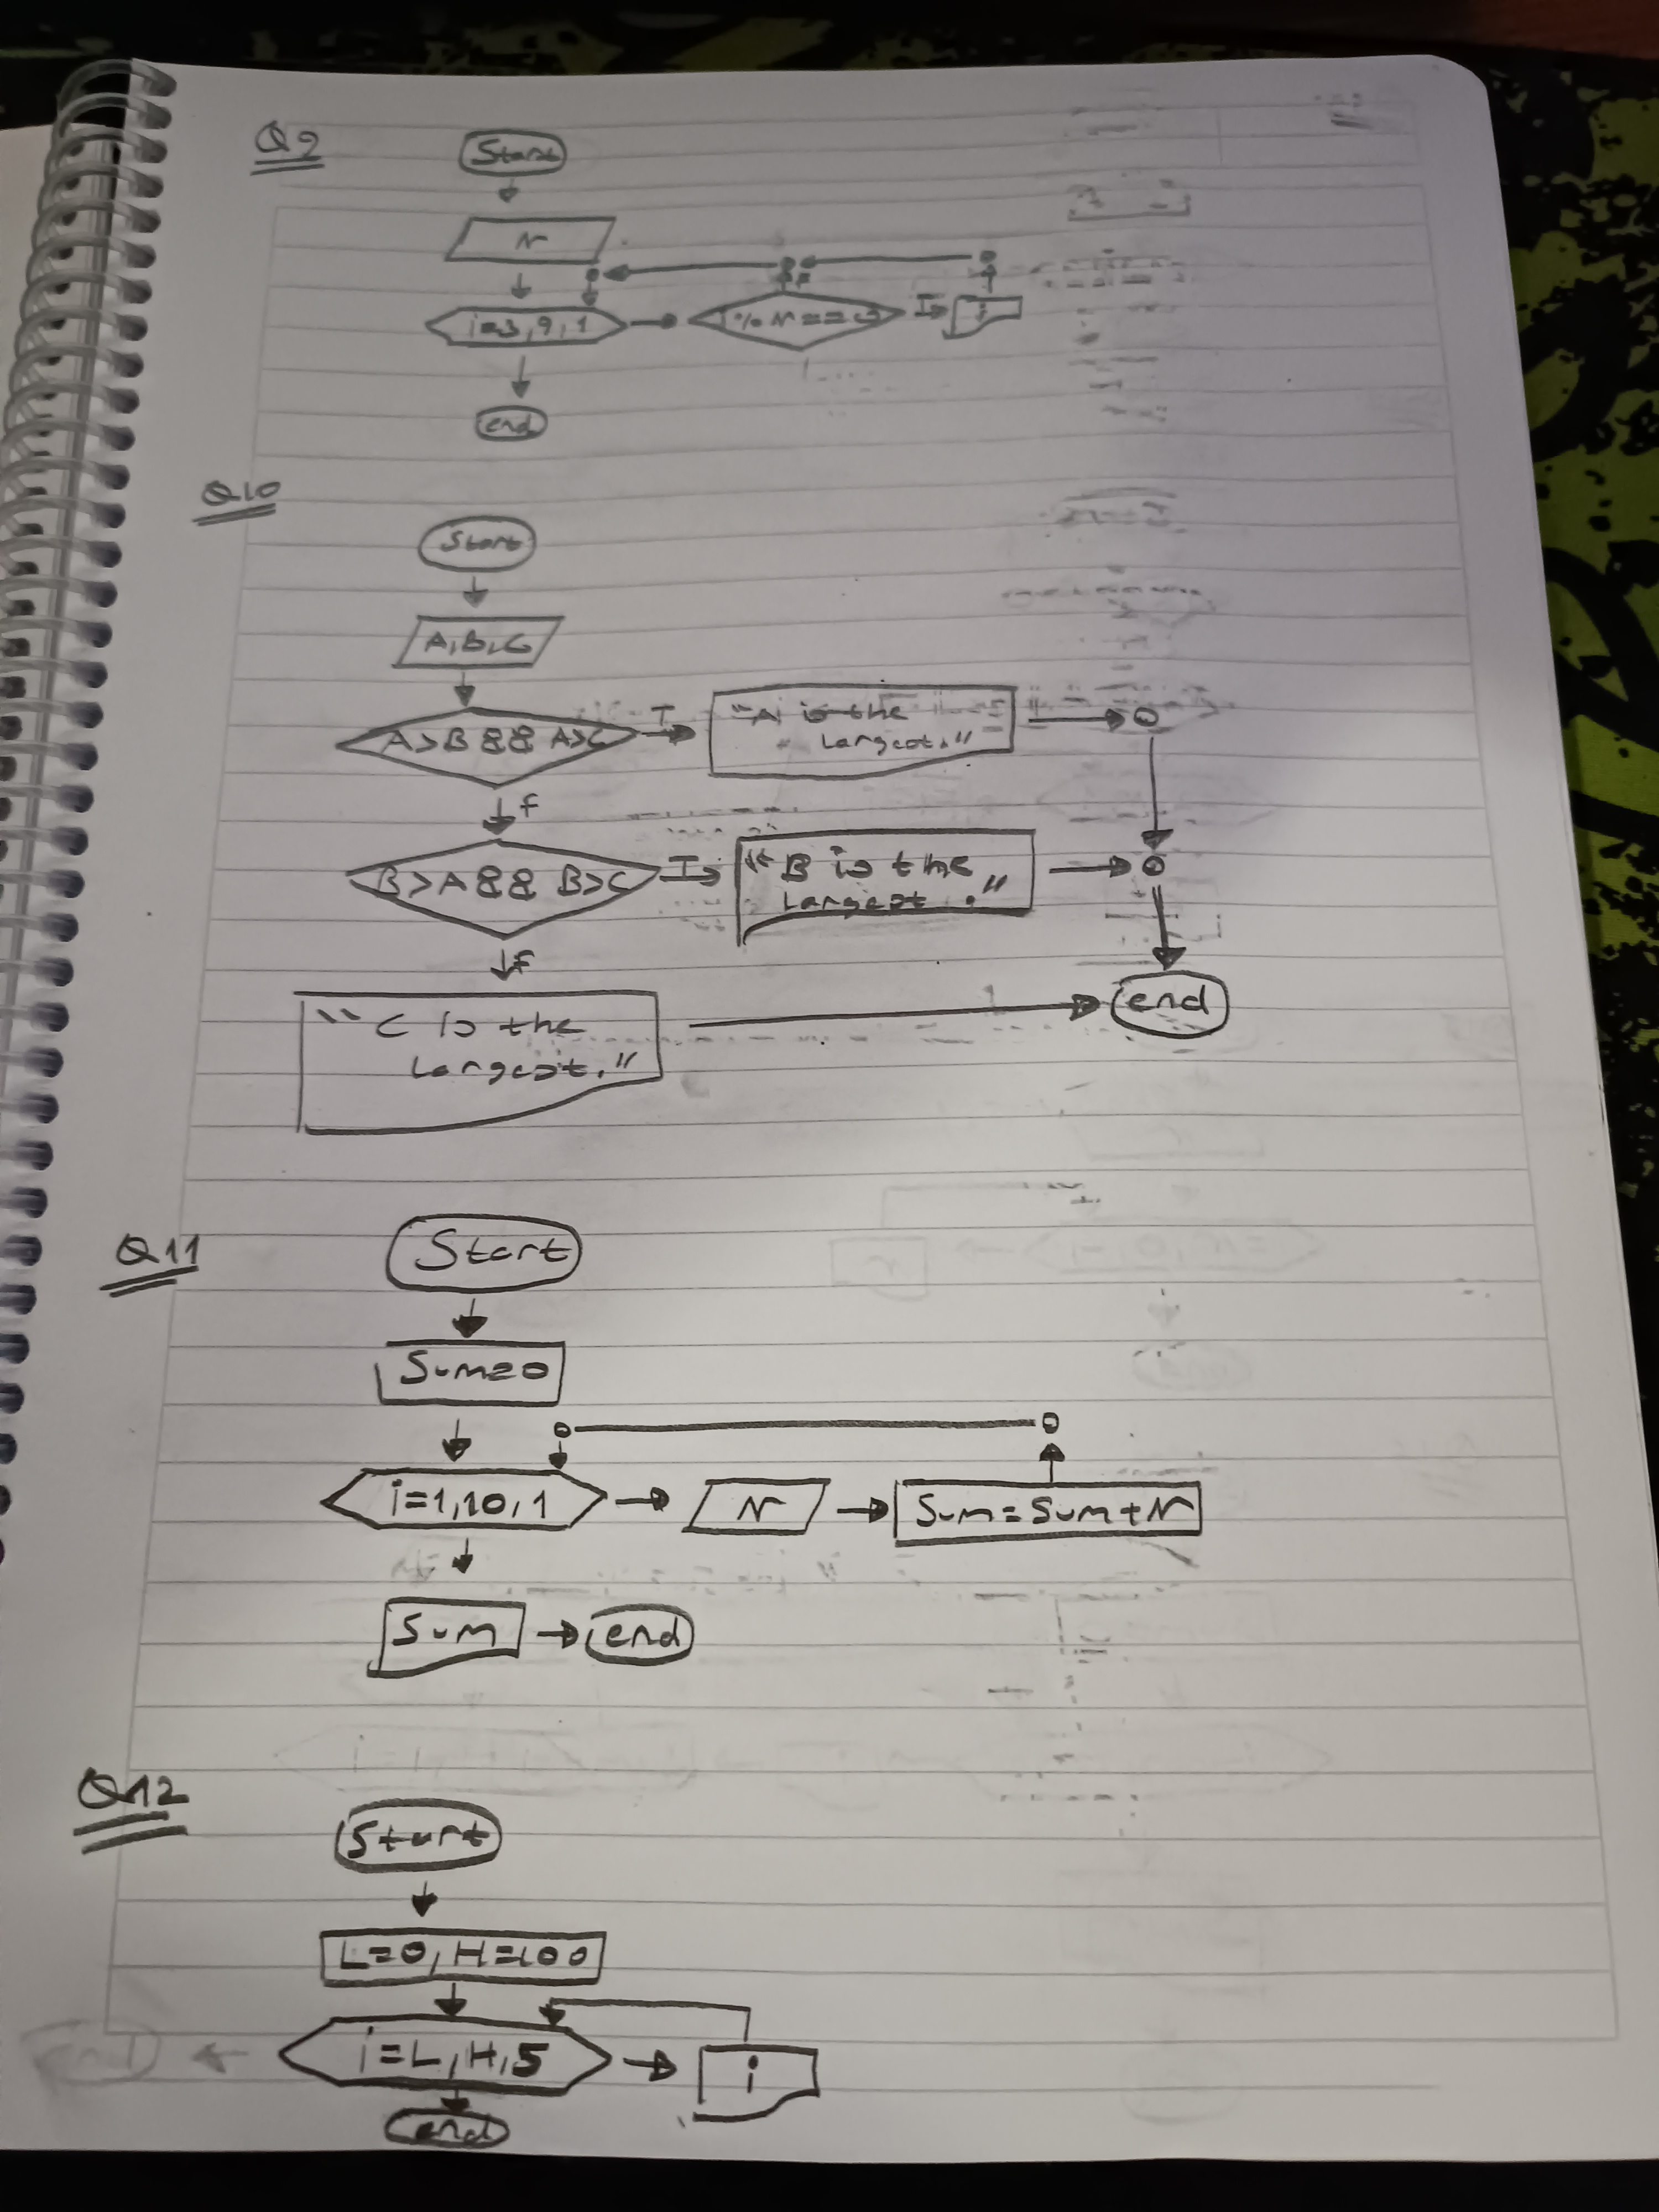 Q9
Start
N
i=3,9,1
F
% N ==
T
i
end
Q10
Start
A,B,C
A>B && A>C
T
"A is the
largest."
f
B>A && B>C
T
"B is the
largest."
f
"C is the
largest."
end
Q11
Start
Sum=0
i=1,10,1
N
Sum=Sum+N
Sum
end
Q12
Start
L=0, H=100
i=L,H,5
i
end
end